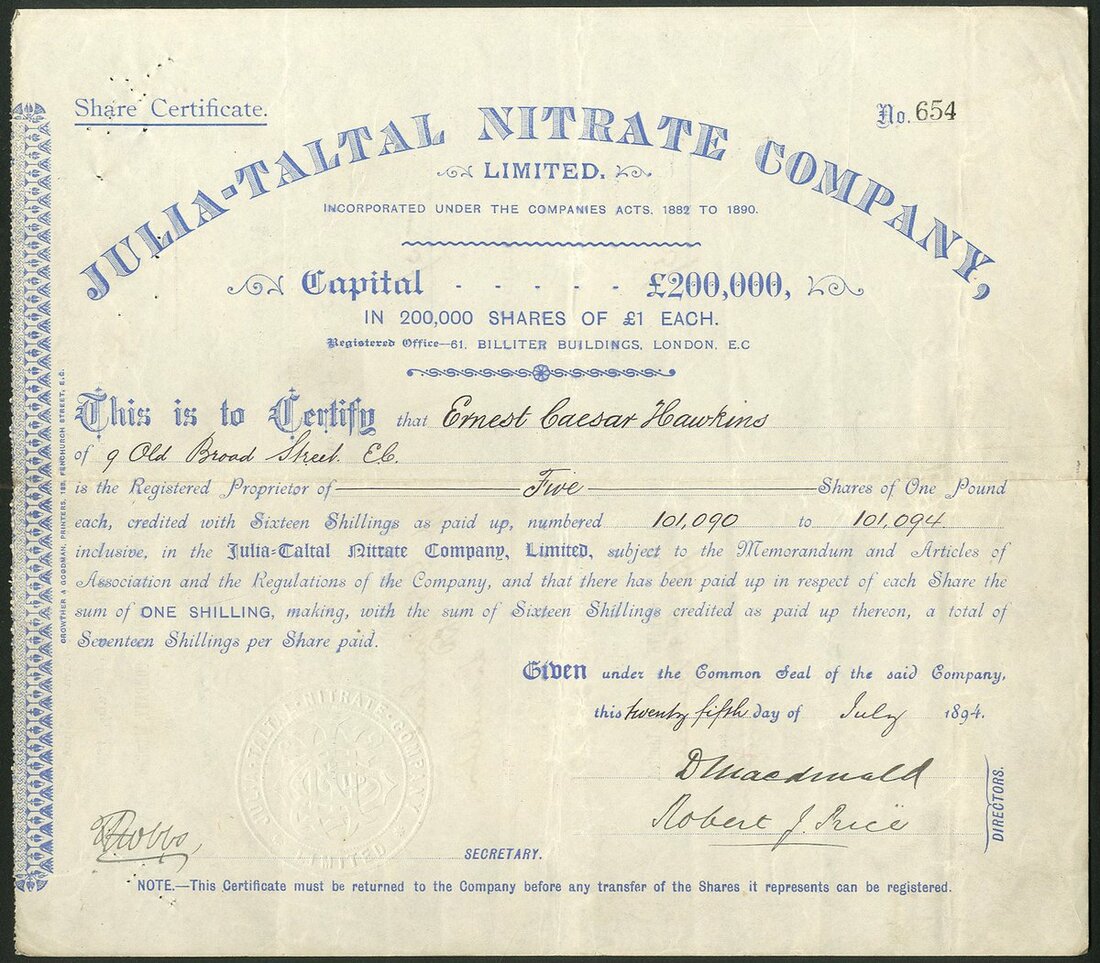 Share Certificate.
No. 654
JULIA-TALTAL NITRATE COMPANY,
LIMITED.
INCORPORATED UNDER THE COMPANIES ACTS, 1882 TO 1890.
Capital - - - - - £200,000,
IN 200,000 SHARES OF £1 EACH.
Registered Office—61, BILLITER BUILDINGS, LONDON, E.C
This is to Certify that Ernest Caesar Hawkins
of 9 Old Broad Street. E.C.
is the Registered Proprietor of Five Shares of One Pound
each, credited with Sixteen Shillings as paid up, numbered 101,090 to 101,094
inclusive, in the Julia-Taltal Nitrate Company, Limited, subject to the Memorandum and Articles of
Association and the Regulations of the Company, and that there has been paid up in respect of each Share the
sum of ONE SHILLING, making, with the sum of Sixteen Shillings credited as paid up thereon, a total of
Seventeen Shillings per Share paid.
Given under the Common Seal of the said Company,
this twenty fifth day of July 1894.
D Macdonald
Robert J. Price
DIRECTORS.
JULIA-TALTAL-NITRATE-COMPANY
LIMITED
SECRETARY.
NOTE.—This Certificate must be returned to the Company before any transfer of the Shares it represents can be registered.
CROWTHER & GOODMAN, PRINTERS, FENCHURCH STREET, E.C.